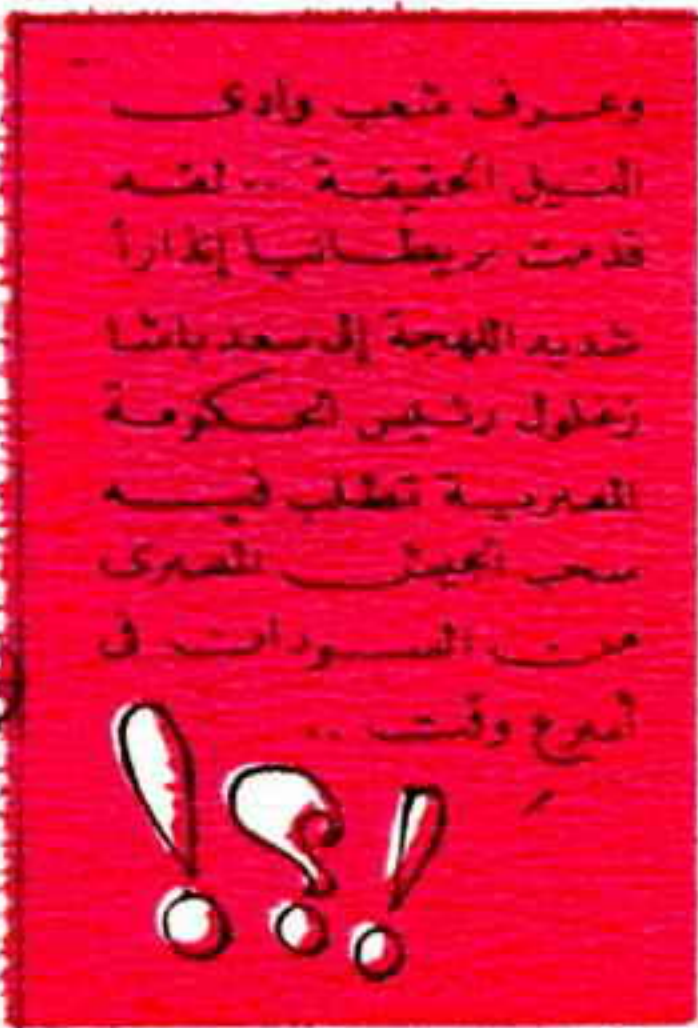 وعرف شعب وادى
النيل الحقيقة .. لقد
قدمت بريطانيا إنذاراً
شديد اللهجة إلى سعد باشا
زغلول رئيس الحكومة
المصرية تطلب فيه
سحب الجيش المصرى
من السودان فى
أسرع وقت ..
!؟!